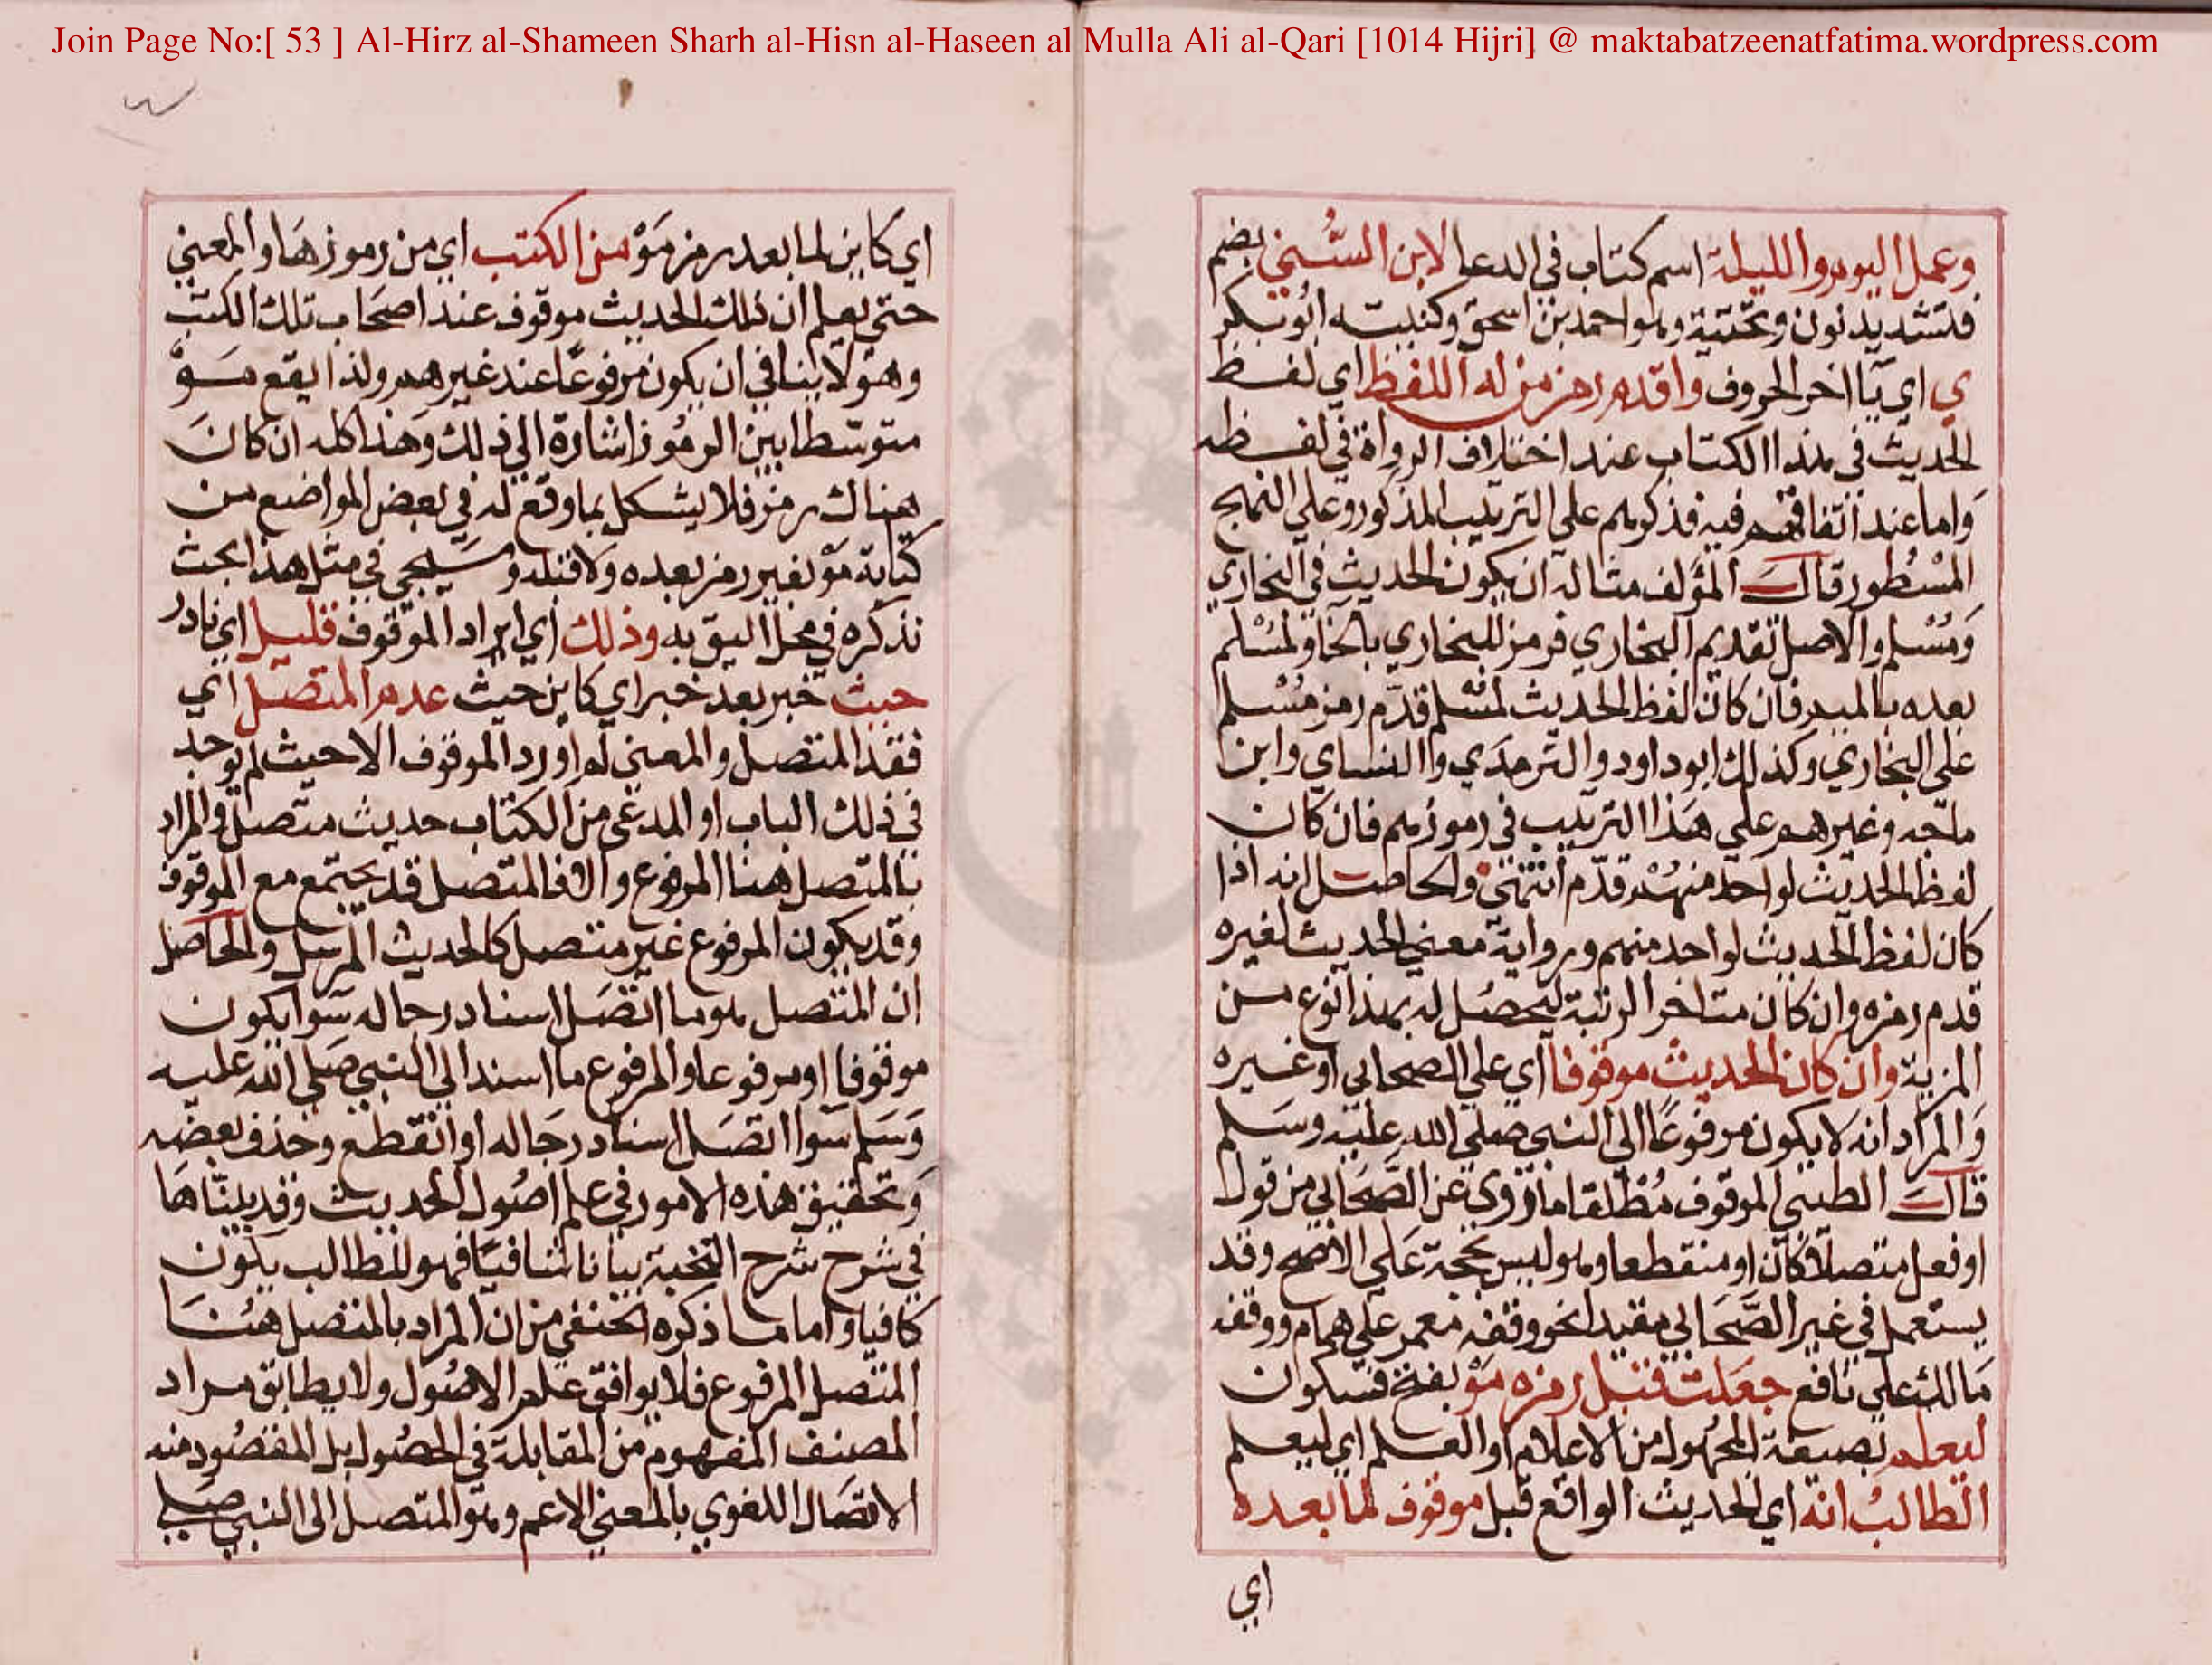 Join Page No:[ 53 ] Al-Hirz al-Shameen Sharh al-Hisn al-Haseen al Mulla Ali al-Qari [1014 Hijri] @ maktabatzeenatfatima.wordpress.com
وعمل اليوم والليلة اسم كتاب في الدعا لابن السُّني بضم
فتشديد نون وتحتية وهو احمد بن اسحق وكنيته ابو بكر
ي اي يآ اخر الحروف واقدم رمز من له اللفظ اي لفظ
الحديث في هذا الكتاب عند اختلاف الرواة في لفظه
واما عند اتفاقهم فيه فذكرهم على الترتيب المذكور وعلي النهج
المسْطور قال المؤلف مثاله ان يكون الحديث في البخاري
ومُسْلم والاصل تقديم البخاري فرمز للبخاري بالخا ولمسْلم
بعده بالميم فان كان لفظ الحديث لمسْلم قدّم رمز مُسْلم
على البخاري وكذلك ابو داود والترمدَي واالنساي وابن
ماجه وغيرهم علي هَذا الترتيب في رموزهم فان كان
لفظ الحديث لواحد منهُمْ قدّم انتهَي والحاصل انه اذا
كان لفظ الحديث لواحد منهم ورواية معني الحديث لغيره
قدم رمزه وان كان متاخر الرتبة ليحصُل له بهذا نوع من
المزية وان كان الحديث موقوفا اي علي الصحابي او غيره
وَالمرَاد انه لا يكون مرفوعًا الى النبي صلي الله عليْه وسَلم
قال الطيبي الموقوف مُطْلقا ما رُوي عن الصَّحَابي من قول
او فعل متصلاً كان او منقطعا وهو ليس بحجة عَلي الاصح وقد
يستعمل في غير الصَّحَابي مقيدا نحو وقفه معمر علي همام ووقفه
مَالك علي نافع جعَلت قبل رمزه مَوْ بفتح فسكون
ليعلم بصيغة المجهُول من الاعلام او العلم اي ليعلم
الطالبُ انه اي الحديث الواقع قبل موقوف لما بعده
اي
اي كاين لما بعد رمز مَوْ من الكتب اي من رموزهَا والمعني
حتي يعلم ان ذلك الحديث موقوف عند اصحَاب تلك الكتب
وهوَ لا ينافي ان يكون مرفوعًا عند غيرهم ولذا يقع مَوْ
متوسّطا بين الرمُوز اشارة الي ذلك وَهَذا كله ان كانَ
هناك رمز فلا يشكل بما وقع له في بعض المواضع من
كتابة مَوْ بغير رمز بعده ولا قبله وسَيجي في مثل هذا بحث
نذكره في محل اليق به وذلك اي ايراد الموقوف قليل اي نادر
حيث خبر بعد خبر اي كاين حيث عدم المتصل اي
فقد المتصل والمعني لم اورد الموقوف الا حيث لم يوجد
في ذلك الباب او المدعَي من الكتاب حديث متصل والمراد
بالمتصل هنا المرفوع والا فالمتصل قد يجتمع مع الموقوف
وقد يكون المرفوع غير متصل كالحديث المرسل والحَاصل
ان المتصل هو ما اتصَل اسناد رجاله سَوا يكون
موقوفا او مرفوعا والمرفوع ما اسند الي النبي صَلي الله عليه
وَسَلم سَوا اتصَل اسناد رجَاله او انقطع وحذف بعضه
وَتحقيق هذه الامور في علم اصُول الحديث وقد بيناهَا
في شرح شرح النخبة بيانا شافيًا فهو للطالب يكون
كافيا واما ما ذكره الحنفي من ان المراد بالمتصل هُنَا
المتصل المرفوع فلا يوافق علم الاصُول ولا يطابق مراد
المصنف المفهوم من المقابلة في الحصُول بل المقصُود منه
الاتصَال اللغوي بالمعني الاعم وهو المتصل الى النبي صَلي